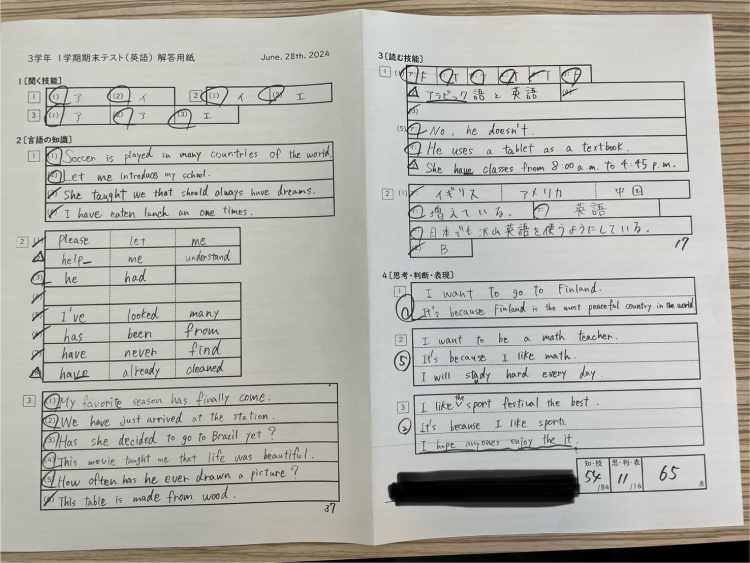 3学年 1学期期末テスト(英語) 解答用紙 June. 28th. 2024
1【聞く技能】
1 (1) ア (2) イ 2 (1) イ (2) エ
3 (1) ア (2) ア (3) エ
2【言語の知識】
1 (1) Soccer is played in many countries of the world.
(2) Let me introduce my school.
(3) She taught we that should always have dreams.
(4) I have eaten lunch an one times.
2 (1) please let me
(2) help me understand
(3) he had
(4)
(5) I've looked many
(6) has been from
(7) have never find
(8) have already cleaned
3 (1) My favorite season has finally come.
(2) We have just arrived at the station.
(3) Has she decided to go to Brazil yet?
(4) This movie taught me that life was beautiful.
(5) How often has he ever drawn a picture?
(6) This table is made from wood.
37
3【読む技能】
1 (1) F T T T F
アラビック語と英語
(3)
(5) No, he doesn't.
He uses a tablet as a textbook.
She have classes from 8:00 a.m. to 4:45 p.m.
2 (1) イギリス アメリカ 中国
増えている. 英語
日本でも沢山英語を使うようにしている.
B
17
4【思考・判断・表現】
1 I want to go to Finland.
It's because Finland is the most peaceful country in the world
2 I want to be a math teacher.
It's because I like math.
5
I will study hard every day.
3 I like the sport festival the best.
It's because I like sports.
2
I hope anyones enjoy the it.
知・技 54/84 思・判・表 11/16 65点